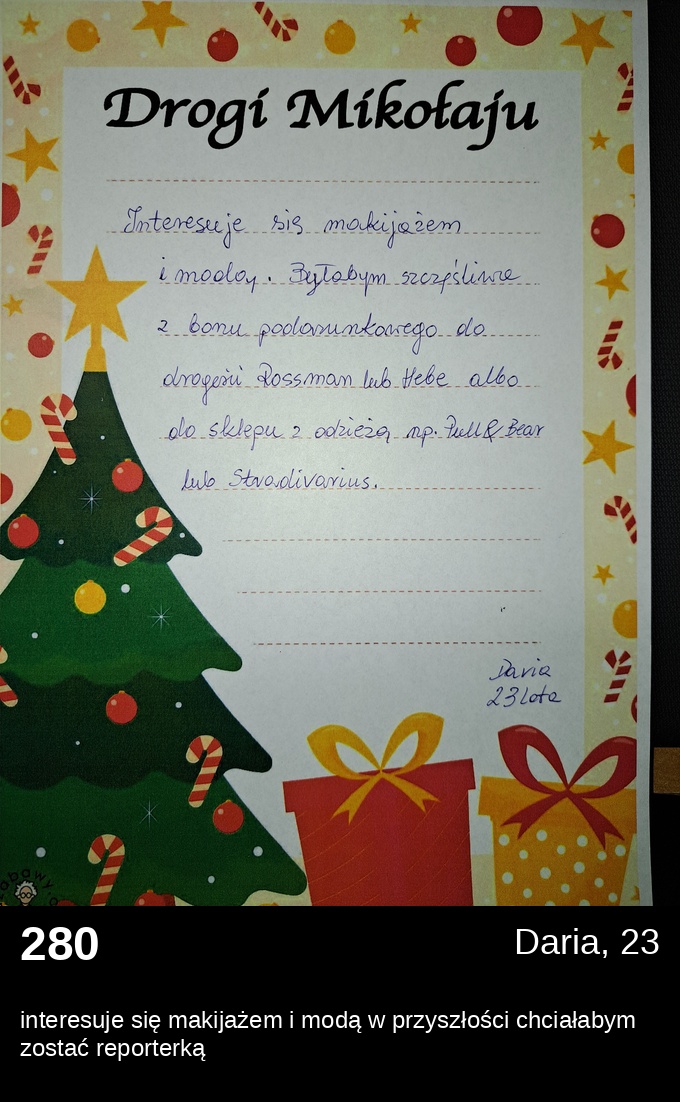 Drogi Mikołaju
Interesuje się makijażem
i modą. Byłabym szczęśliwa
z bonu podarunkowego do
drogerii Rossman lub Hebe albo
do sklepu z odzieżą np. Pull&Bear
lub Stradivarius.
Daria
23 lata
280
Daria, 23
interesuje się makijażem i modą w przyszłości chciałabym
zostać reporterką